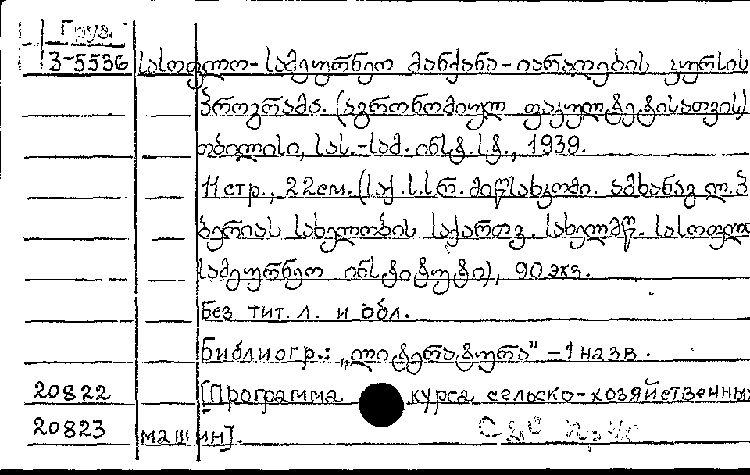 Груз.
3-5536 სასოფლო-სამეურნეო მანქანა-იარაღების კურსის
პროგრამა. (აგრონომიულ ფაკულტეტისათვის)
თბილისი, სას.-სამ. ინსტ. სტ., 1939.
11 стр., 22 см. (საქ. ს.ს.რ. მიწსახკომი. ამხანაგ ლ. პ.
ბერიას სახელობის საქართვ. სახელმწ. სასოფლო
სამეურნეო ინსტიტუტი), 90 экз.
Без тит. л. и обл.
Библиогр.: „ლიტერატურა" – 1 назв.
20822 [Программа курса сельско-хозяйственных
20823 машин].